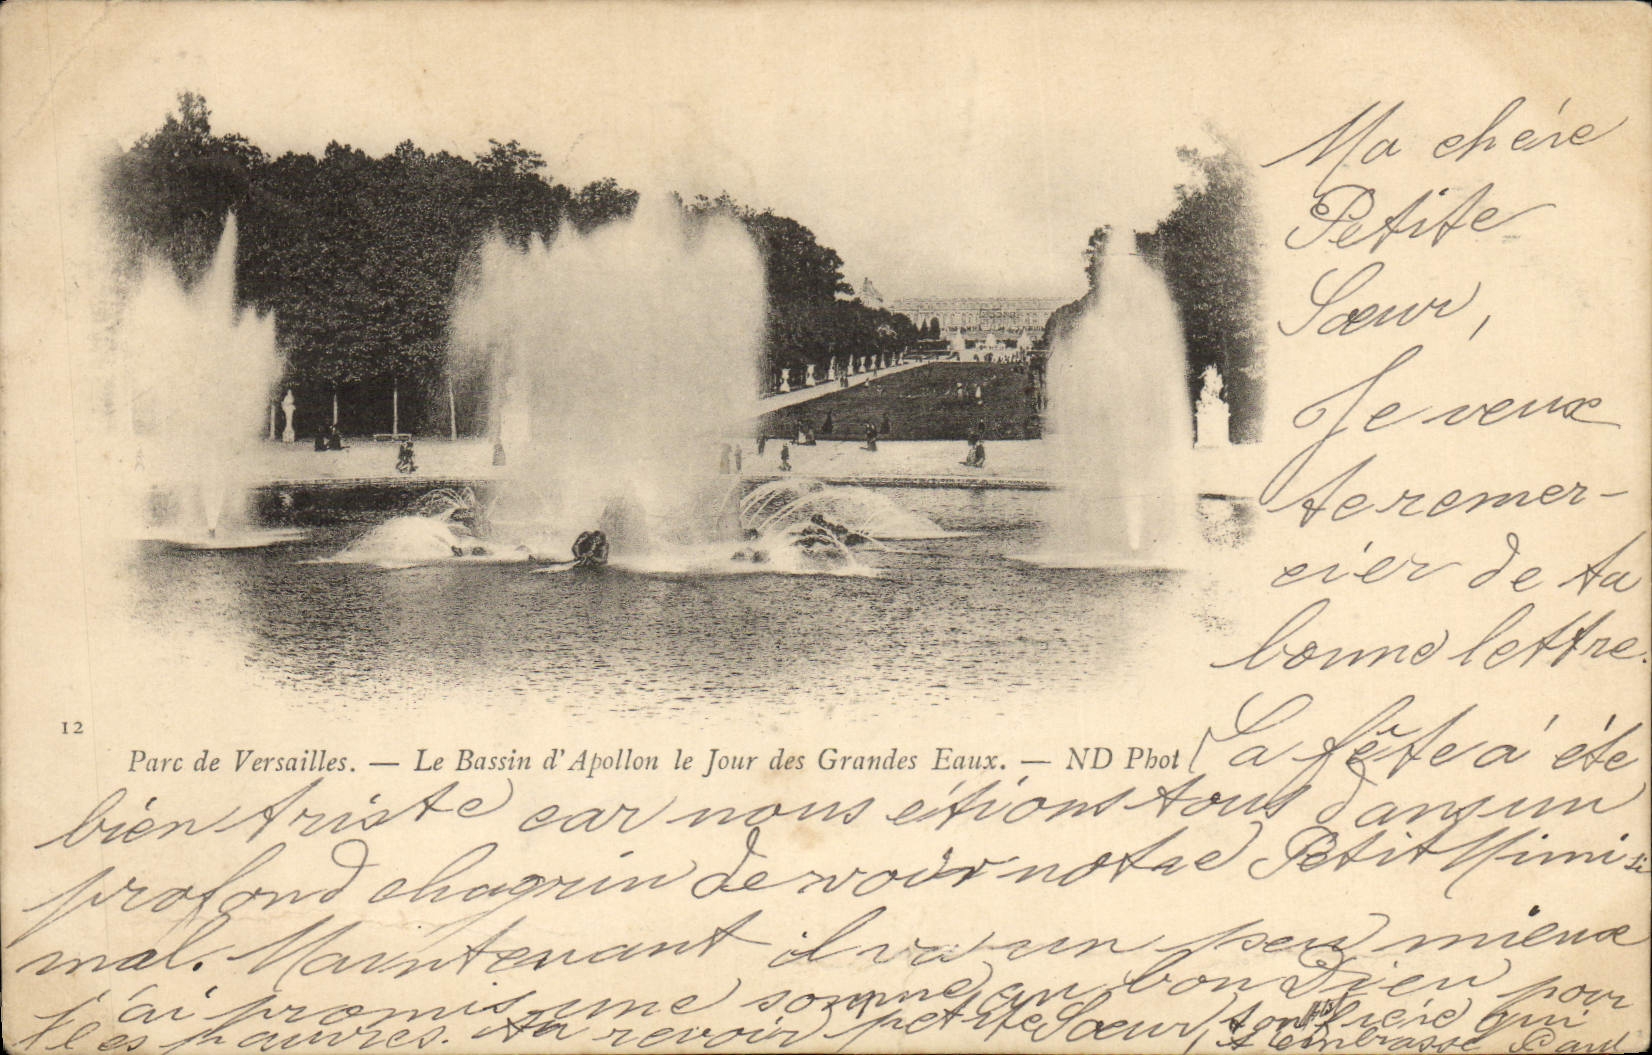 Ma chére
Petite
Sœur,
Je veux
te remer-
cier de ta
bonne lettre.
12
Parc de Versailles. — Le Bassin d'Apollon le Jour des Grandes Eaux. — ND Phot
La fête a été
bien triste car nous étions tous dans un
profond chagrin de voir notre Petit Mimi si
mal. Maintenant il va un peu mieux
j'ai promis une somme au bon Dieu pour
les pauvres. Au revoir petite Sœur, ton frére qui
t'embrasse Paul